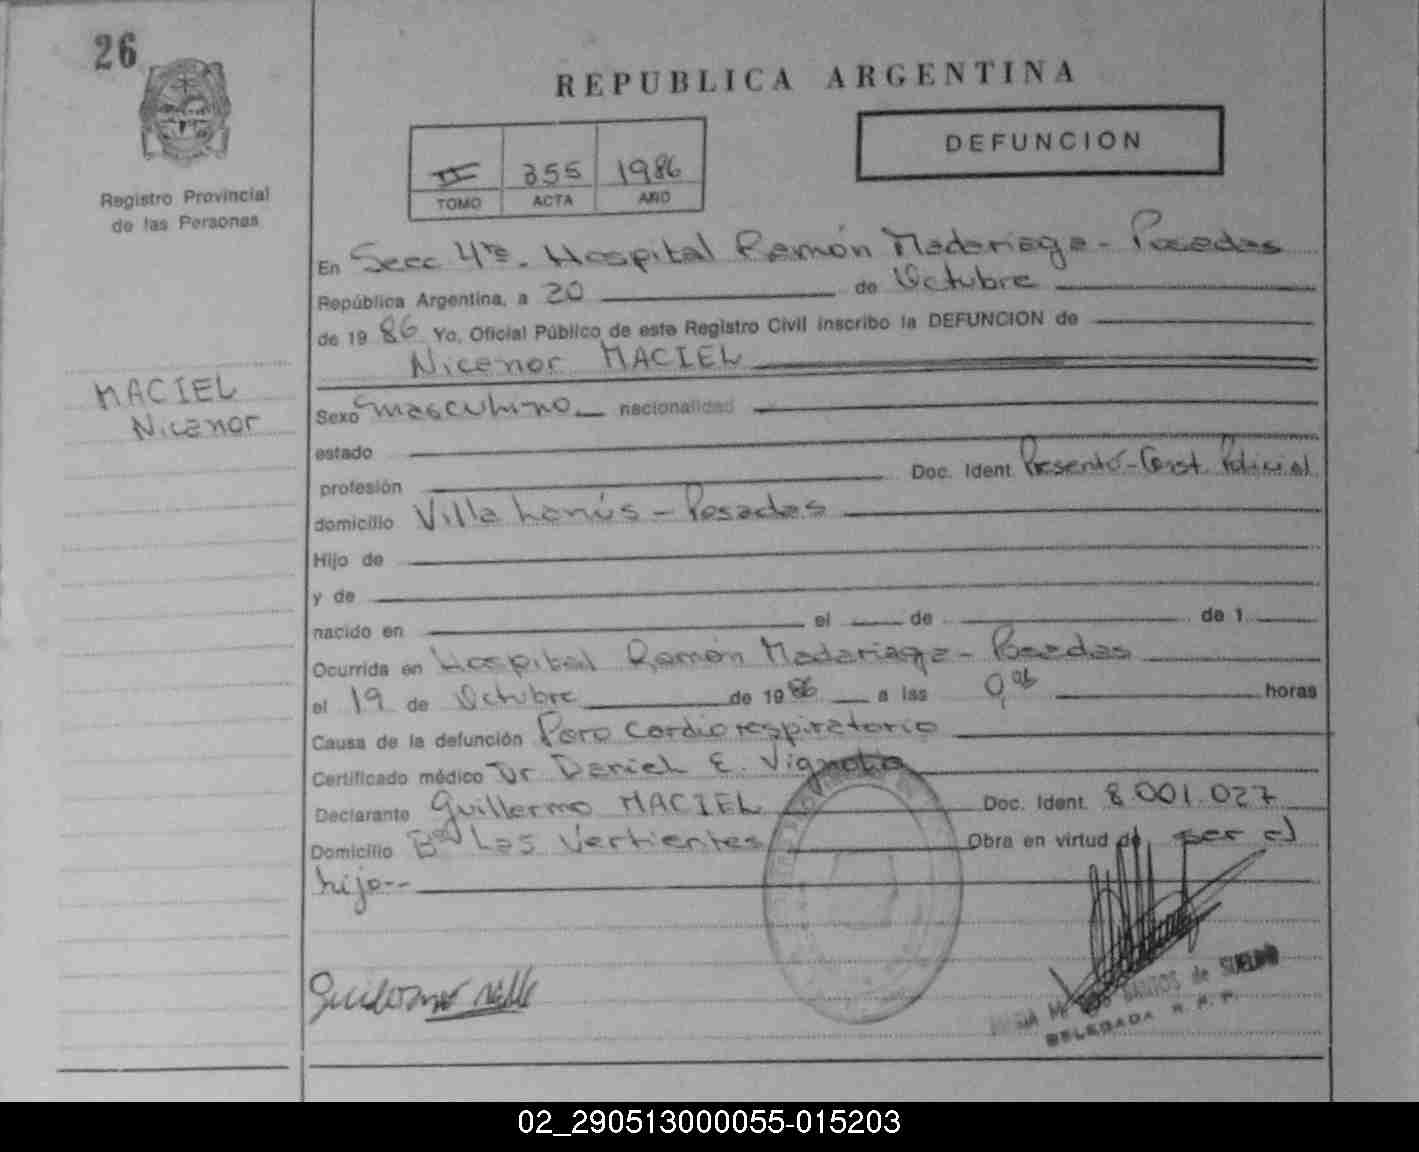 26
REPUBLICA ARGENTINA
DEFUNCION
II 355 1986
TOMO ACTA AÑO
Registro Provincial
de las Personas
En Secc 4ta. Hospital Ramón Madariaga - Posadas
República Argentina, a 20 de Octubre
de 19 86 Yo, Oficial Público de este Registro Civil inscribo la DEFUNCION de
Nicanor MACIEL
MACIEL
Nicanor
Sexo masculino nacionalidad
estado
profesión Doc. Ident. Presentó - Const. Policial
domicilio Villa Lanús - Posadas
Hijo de
y de
nacido en el de de 1
Ocurrida en Hospital Ramón Madariaga - Posadas
el 19 de Octubre de 19 86 a las horas
Causa de la defunción Paro cardiorespiratorio
Certificado médico Dr Daniel E. Vignolio
Declarante Guillermo MACIEL Doc. Ident. 8.001.027
Domicilio Bº Las Vertientes Obra en virtud de ser el
hijo--
SANTOS de
DELEGADA R. P. P.
02_290513000055-015203